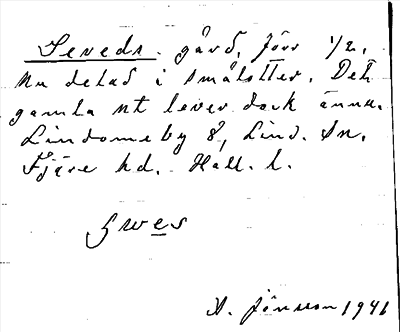 Seveds gård, förr 1/2,
nu delad i smålotter. Det
gamla nt lever dock ännu.
Lindomeby 8, Lind. sn.
Fjäre hd. Hall. l.
A. Jönsson 1941